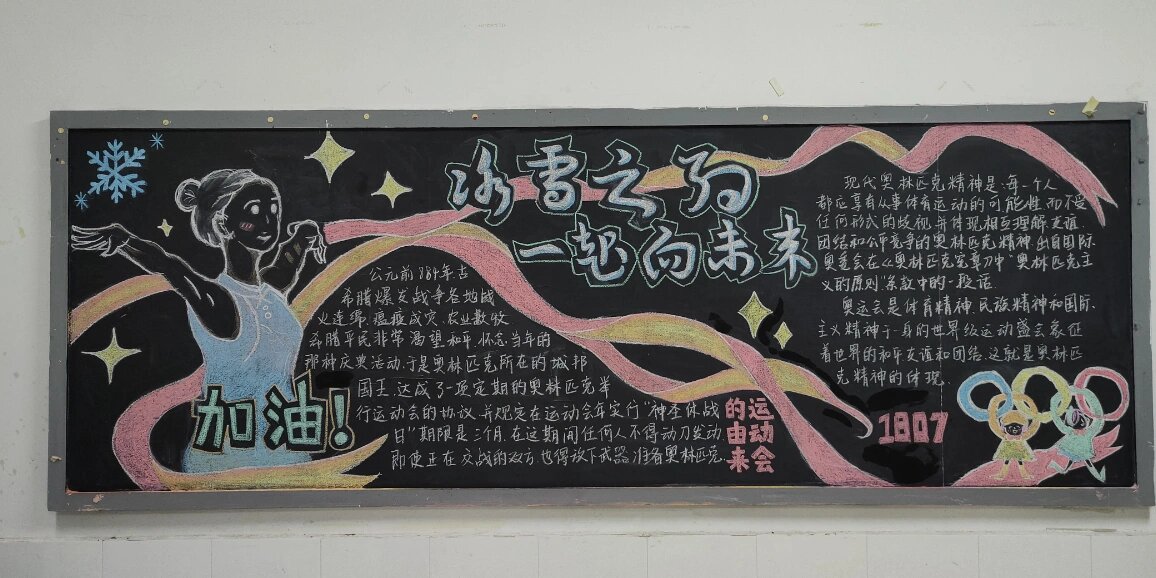 冰雪之约
一起向未来
公元前884年古
希腊爆发战争各地战
火连绵.瘟疫成灾.农业歉收.
希腊平民非常渴望和平.怀念当年的
那种庆典活动.于是奥林匹克所在的城邦
国王.达成了一项定期的奥林匹克举
行运动会的协议.并规定在运动会年实行“神圣休战
日”期限是三个月.在这期间任何人不得动刀发动
即使正在交战的双方.也得放下武器.准备奥林匹克.
加油!
运动会
的由来
现代奥林匹克精神是:每一个人
都应享有从事体育运动的可能性.而不受
任何形式的歧视.并体现相互理解.友谊
团结和公平竞争的奥林匹克精神.出自国际
奥委会在《奥林匹克宪章》中“奥林匹克主
义的原则”条款中的一段话.
奥运会是体育精神.民族精神和国际
主义精神于一身的世界级运动盛会象征
着世界的和平友谊和团结.这就是奥林匹
克精神的体现.
1807